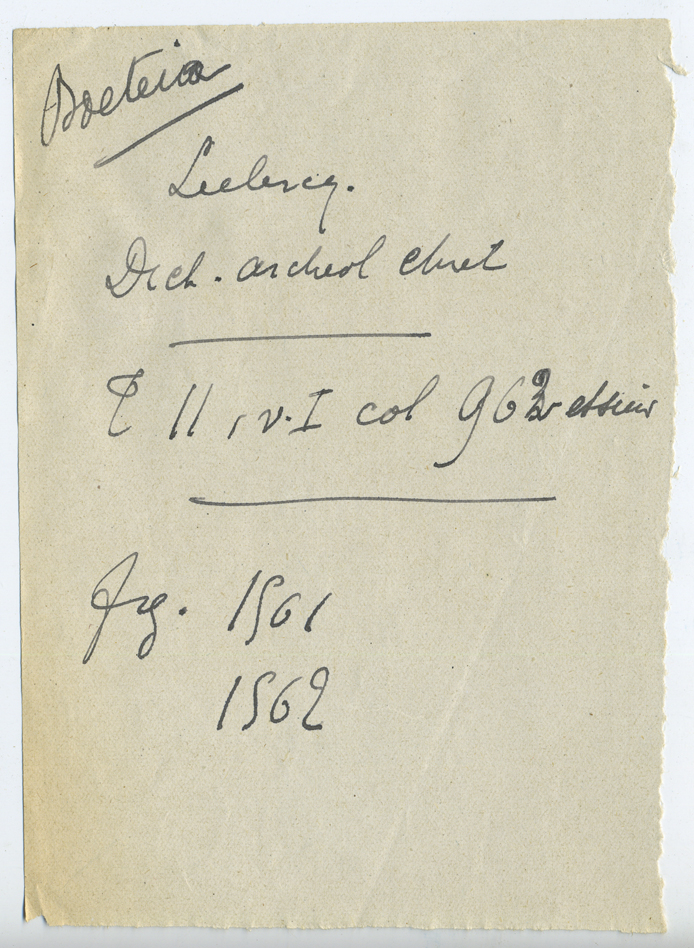 Leclercq.
Dict. archeol chret
T II, v. I col 962 et suiv
Fig. 1561
1562